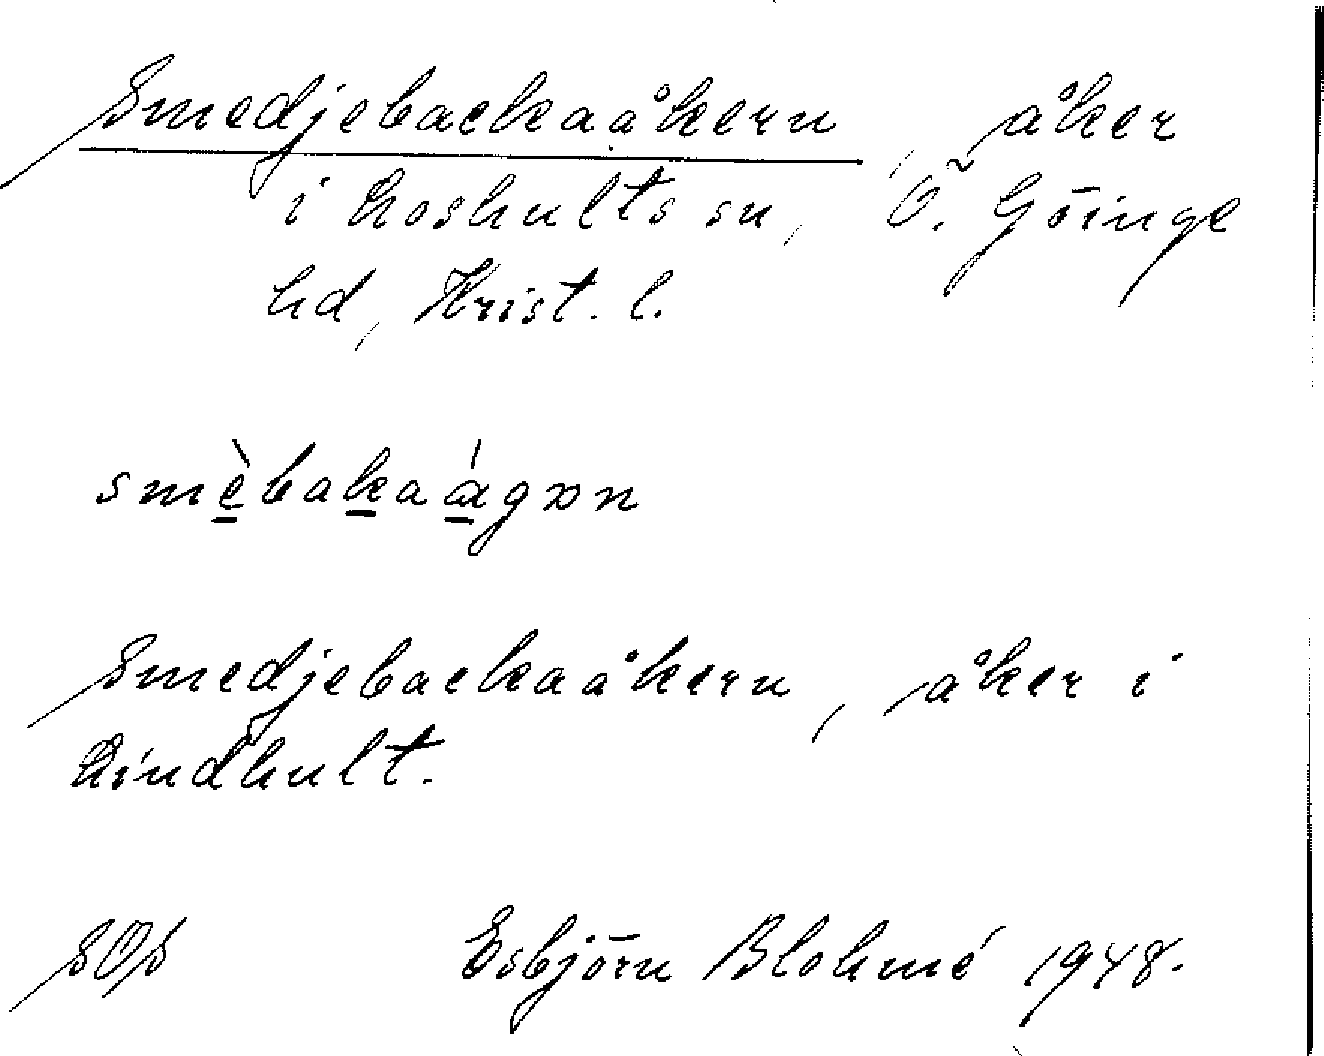 Smedjebackaåkern, åker
i Loshults sn, Ö. Göinge
hd, Krist. l.
smèbakaágon
Smedjebackaåkern, åker i
Lindhult.
SOS Esbjörn Blohmé 1948.